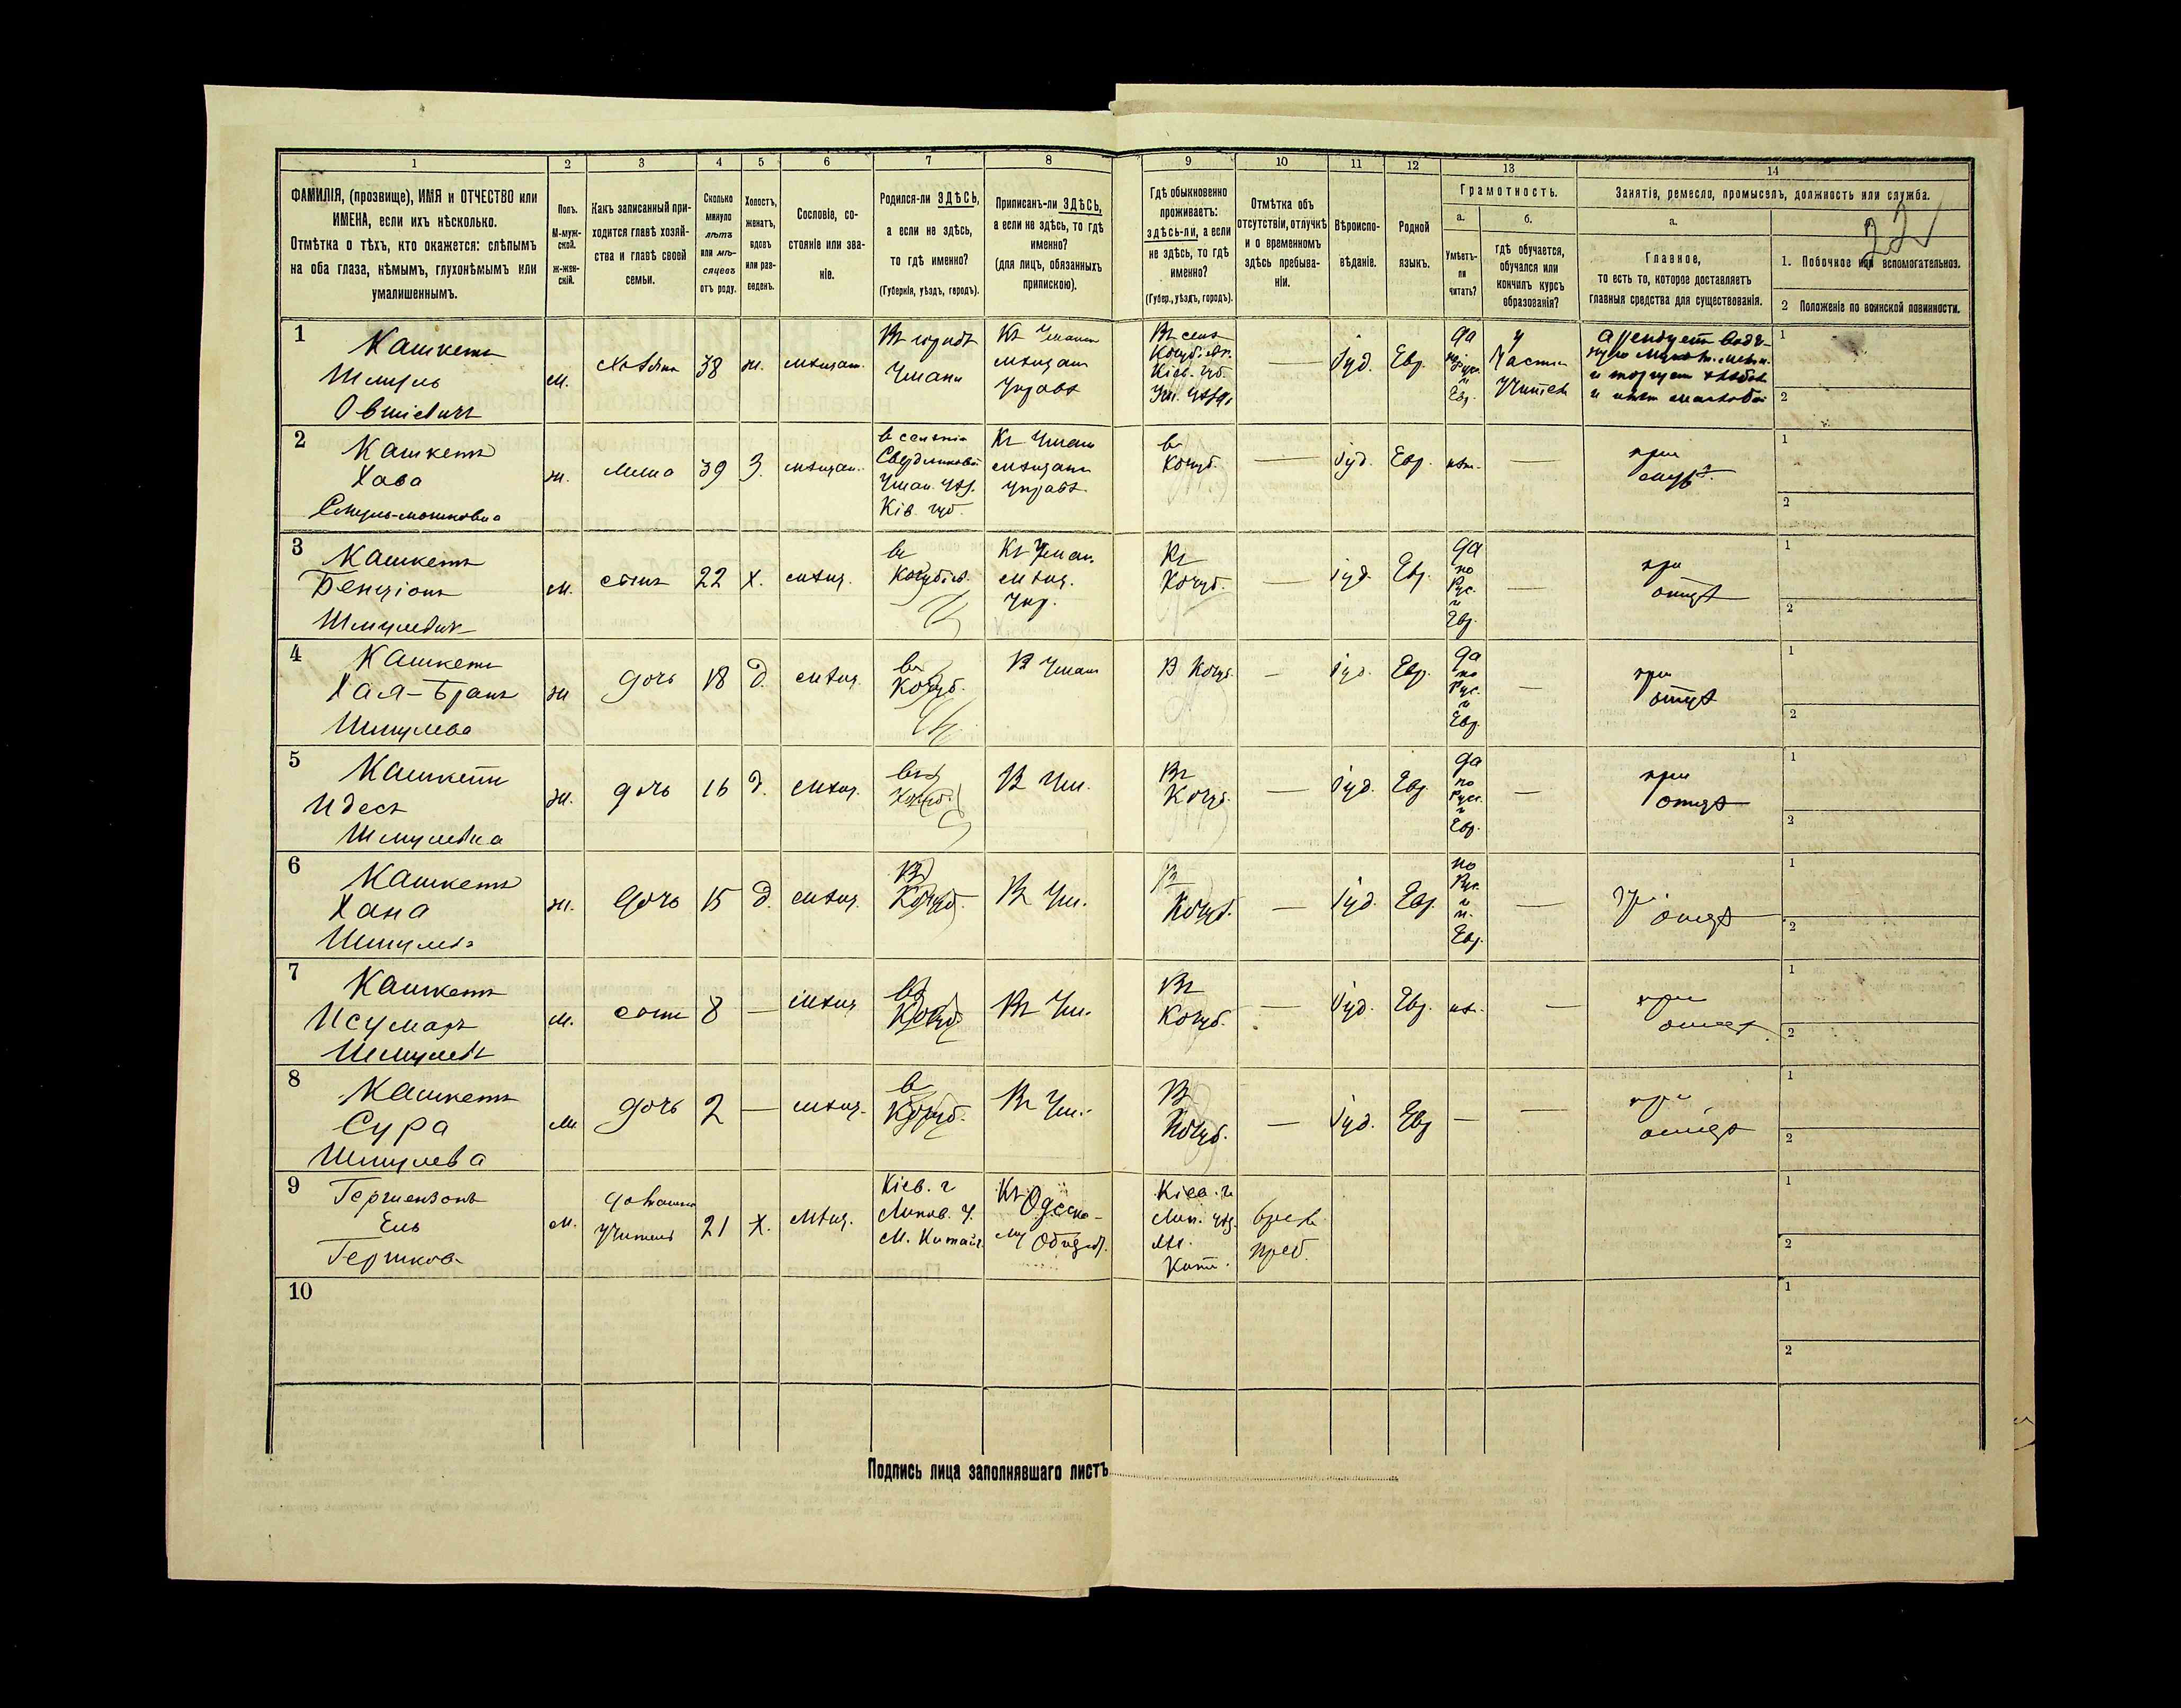 1 2 3 4 5 6 7 8 9 10 11 12 13 14
ФАМИЛІЯ, (прозвище), ИМЯ и ОТЧЕСТВО или
ИМЕНА, если ихъ нѣсколько.
Отмѣтка о тѣхъ, кто окажется: слѣпымъ
на оба глаза, нѣмымъ, глухонѣмымъ или
умалишеннымъ.
Полъ.
М-муж-
ской.
ж-жен-
скій.
Какъ записанный при-
ходится главѣ хозяй-
ства и главѣ своей
семьи.
Сколько
минуло
лѣтъ
или мѣ-
сяцевъ
отъ роду.
Холостъ,
женатъ,
вдовъ
или раз-
веденъ.
Сословіе, со-
стояніе или зва-
ніе.
Родился-ли ЗДѢСЬ,
а если не здѣсь,
то гдѣ именно?
(Губернія, уѣздъ, городъ).
Приписанъ-ли ЗДѢСЬ,
а если не здѣсь, то гдѣ
именно?
(для лицъ, обязанныхъ
припискою).
Гдѣ обыкновенно
проживаетъ:
здѣсь-ли, а если
не здѣсь, то гдѣ
именно?
(Губер., уѣздъ, городъ).
Отмѣтка объ
отсутствіи, отлучкѣ
и о временномъ
здѣсь пребыва-
ніи.
Вѣроиспо-
вѣданіе.
Родной
языкъ.
Грамотность.
а.
Умѣетъ-
ли
читать?
б.
гдѣ обучается,
обучался или
кончилъ курсъ
образованія?
Занятіе, ремесло, промыселъ, должность или служба.
22
а.
Главное,
то есть то, которое доставляетъ
главныя средства для существованія.
1. Побочное или вспомогательное.
2 Положеніе по воинской повинности.
1
Кашкетъ
Шмуль
Овшіевичъ
м.
хозяинъ
38
ж.
мѣщан.
Въ городѣ
Умани
Къ Уман
мѣщан
Управѣ
Въ селѣ
Кочубіевк.
Кіев. губ.
Ум. уѣзд.
—
Іуд.
Евр.
да
и
Евр.
у
Части
Учителя
1
2
2
Кашкетъ
Хава
ж.
жена
39
З.
мѣщан.
в селеніи
Свердликовой
Уман. Уѣз.
Кіев. губ.
Къ Уман
мѣщан
Управѣ
в
Кочуб.
—
Іуд.
Евр.
нѣт.
—
при
мужѣ
1
2
3
Кашкетъ
Бенціонъ
Шмулевич
м.
сынъ
22
х.
мѣщ.
в
Кочубіев.
Къ Уман.
мѣщ.
Упр.
Въ
Кочуб.
—
Іуд.
Евр.
да
по
Рус.
и
Евр.
—
при
отцѣ
1
2
4
Кашкетъ
Хая-Бранъ
Шмулева
ж
дочь
18
д.
мѣщ.
въ
Кочуб.
В Уман
В Кочуб.
—
Іуд.
Евр.
да
по
Рус.
и
Евр.
—
при
отцѣ
1
2
5
Кашкетъ
Идесъ
Шмулевна
ж.
дочь
16
д.
мѣщ.
въ
Кочуб.
В Ум.
Въ
Кочуб.
—
Іуд.
Евр.
да
по
Русс.
и
Евр.
—
при
отцѣ
1
2
6
Кашкетъ
Хана
Шмулев
ж.
дочь
15
д.
мѣщ.
Въ
Кочуб.
Въ Ум.
В
Кочуб.
—
Іуд.
Евр.
по
Рус.
и
п.
Евр.
—
при
отцѣ
1
2
7
Кашкетъ
Шмулев
м.
сынъ
8
—
мѣщ
въ
Кочуб
Въ Ум.
Въ
Кочуб.
—
Іуд.
Евр.
нѣт.
—
при
отцѣ
1
2
8
Кашкетъ
Сура
Шмулева
м
дочь
2
—
мѣщ.
в
Кочуб.
Въ Ум.
В
Кочуб.
—
Іуд.
Евр
—
—
при
отцѣ
1
2
9
Гершензонъ
Ель
Гершков.
м.
домашн
учитель
21
х.
мѣщ.
Кіев. г
Липов. у.
М. Китай.
Къ Одесско-
му Общест.
Кіев. г.
Лип. уѣз.
м.
Кит.
врем
преб.
1
2
10
1
2
Подпись лица заполнявшаго листъ